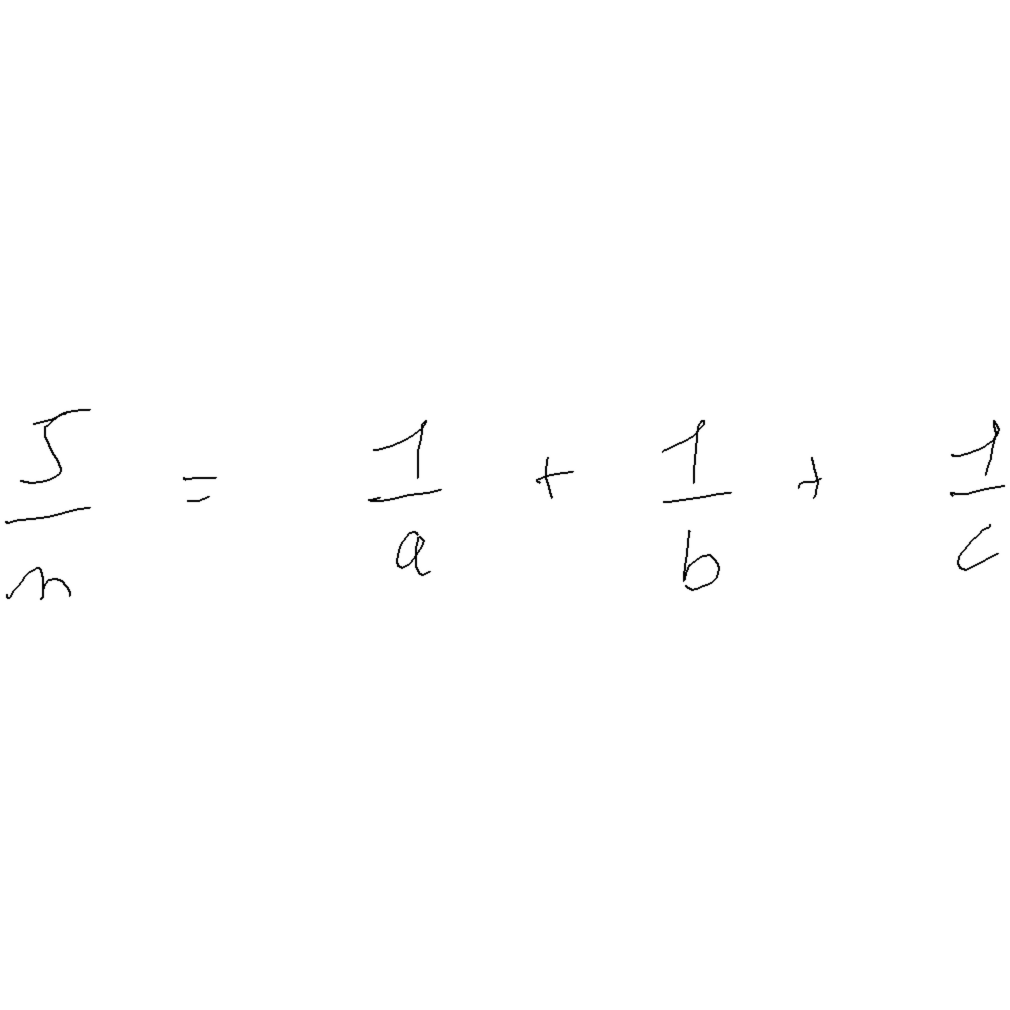 5/n = 1/a + 1/b + 1/c